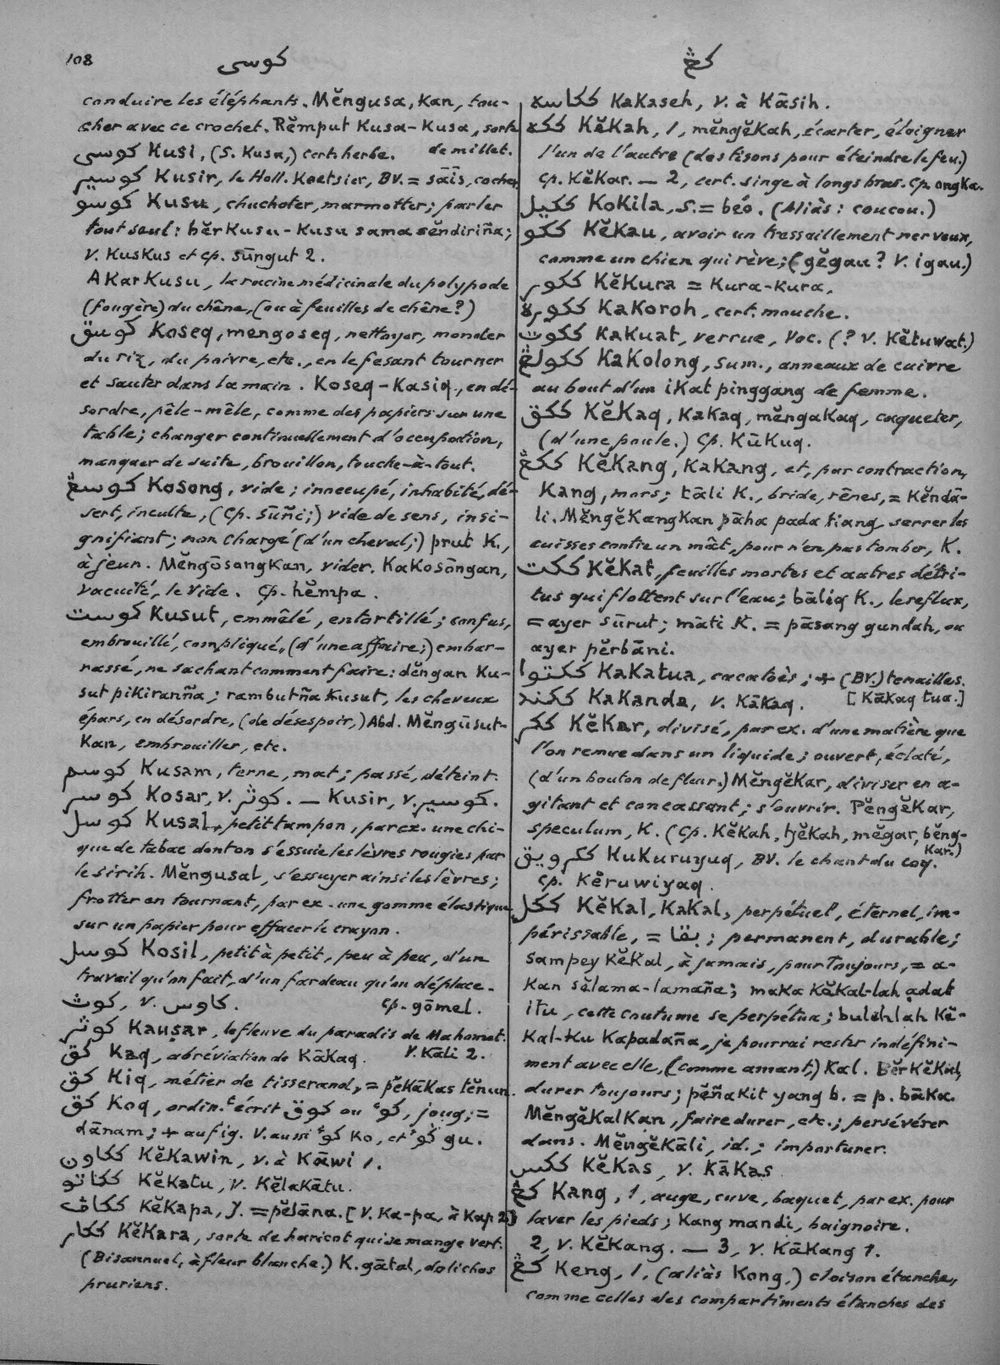 108
كوسى
كڠ
conduire les éléphants. Mĕngusa, kan, tou-
cher avec ce crochet. Rĕmput kusa-kusa, sorte
de millet.
كوسى Kusi, (S. Kusa,) certi herbe.
كوسير Kusir, le Holl. Koetsier, BV. = sāïs, cocher
كوسو Kusu, chuchoter, marmotter; parler
tout seul: bĕrkusu-kusu sama sĕndiriña;
V. Kuskus et cp. sūngut 2.
Akar kusu, la racine médicinale du polypode
(fougère) du chêne, (ou à feuilles de chêne?)
كوسق Koseq, mengoseq, nettoyer, monder
du riz, du poivre, etc., en le fesant tourner
et sauter dans la main. Koseq-Kasiq, en dé-
sordre, pêle-mêle, comme des papiers sur une
table; changer continuellement d'occupation,
manquer de suite, brouillon, touche-à-tout.
كوسڠ Kosong, vide; innocupé, inhabité, dé-
sert, inculte, (cp. sūñi;) vide de sens, insi-
gnifiant; non chargé (d'un cheval;) prut K.,
à jeun. Mĕngōsangkan, vider. Kakosōngan,
vacuité, le vide. Cp. hĕmpa.
كوست Kusut, emmêlé, entortillé; confus,
embrouillé, compliqué, (d'une affaire;) embar-
rassé, ne sachant comment faire: dĕngan ku-
sut pikiranña; rambutña kusut, les cheveux
épars, en désordre, (de désespoir,) Abd. Mĕngūsut-
kan, embrouiller, etc.
كوسم Kusam, terne, mat; passé, déteint.
كوسر Kosar, V. كوثر. — Kusir, V. كوسير.
كوسل Kusal, petit tampon, par ex. une chi-
que de tabac dont on s'essuie les lèvres rougies par
le sirih. Mĕngusal, s'essuyer ainsi les lèvres;
frotter en tournant, par ex. une gomme élastique
sur un papier pour effacer le crayon.
كوسل Kosil, petit à petit, peu à peu, d'un
travail qu'on fait, d'un fardeau qu'on déplace.
كوث, V. كاوس. Cp. gōmel.
كوثر Kauṣar, le fleuve du paradis de Mahomet.
كق Kaq, abréviation de Kākaq. V. Kāli 2.
كق Kiq, métier de tisserand, = pĕkākas tĕnun.
كق Koq, ordin.t écrit كوق ou كوء, joug; =
dānam; + au fig. V. aussi كوء Ko, et كوء gu.
ككاون Kĕkawin, V. à Kāwi 1.
ككاتو Kĕkatu, V. Kĕlakātu.
ككاڤ Kĕkapa, J. = pĕlāna. [V. Ka-pa, à Kap 2]
ككار Kĕkara, sorte de haricot qui se mange vert.
(Bisannuel, à fleur blanche.) K. gātal, dolichos
pruriens.
ككاسه Kakaseh, V. à Kāsih.
ككه Kĕkah, 1, mĕngĕkah, écarter, éloigner
l'un de l'autre (des tisons pour éteindre le feu.)
Cp. Kĕkar. — 2, cert. singe à longs bras. Cp. ongka.
ككيل Kokila, S. = béo. (Aliàs: coucou.)
ككو Kĕkau, avoir un tressaillement nerveux,
comme un chien qui rêve; (gĕgau? V. igau.)
ككور Kĕkura = kura-kura.
ككوره Kakoroh, cert. mouche.
ككوت Kakuat, verrue, Voc. (? V. Kĕtuwat.)
ككولڠ Kakolong, Sum., anneaux de cuivre
au bout d'un ikat pinggang de femme.
ككق Kĕkaq, Kakaq, mĕngakaq, caqueter,
(d'une poule.) Cp. Kūkuq.
ككڠ Kĕkang, Kakang, et, par contraction,
Kang, mors; tāli K., bride, rênes, = Kĕndā-
li. Mĕngĕkangkan pāha pada tiang, serrer les
cuisses contre un mât, pour n'en pas tomber, K.
ككت Kĕkat, feuilles mortes et autres détri-
tus qui flottent sur l'eau; bāliq K., le reflux,
= ayer sūrut; māti K. = pāsang gundah, ou
ayer pĕrbāni.
ككتوا Kakatua, cacatoès; + (BV.) tenailles.
[Kākaq tua.]
ككند Kakanda, V. Kākaq.
ككر Kĕkar, divisé, par ex. d'une matière que
l'on remue dans un liquide; ouvert, éclaté,
(d'un bouton de fleur.) Mĕngĕkar, diviser en a-
gitant et concassant; s'ouvrir. Pĕngĕkar,
speculum, K. (Cp. Kĕkah, tjĕkah, mĕgar, bĕng-
kar.)
ككرويق Kukuruyuq, BV. le chant du coq.
Cp. Kĕruwiyaq.
ككل Kĕkal, Kakal, perpétuel, éternel, im-
périssable, = بقا; permanent, durable;
sampey kĕkal, à jamais, pour toujours, = a-
kan sĕlama-lamaña; maka kĕkal-lah adat
itu, cette coutume se perpétua; bulehlah kĕ-
kal-ku kapadaña, je pourrai rester indéfini-
ment avec elle, (comme amant;) Kal. Bĕrkĕkal,
durer toujours; pĕñakit yang b. = p. bāka.
Mĕngĕkalkan, faire durer, etc.; persévérer
dans. Mĕngĕkāli, id.; importuner.
ككس Kĕkas, V. Kākas.
كڠ Kang, 1, auge, cuve, baquet, par ex. pour
laver les pieds; kang mandi, baignoire.
2, V. Kĕkang. — 3, V. Kākang 1.
كڠ Keng, 1, (aliàs Kong,) cloison étanche,
comme celles des compartiments étanches des